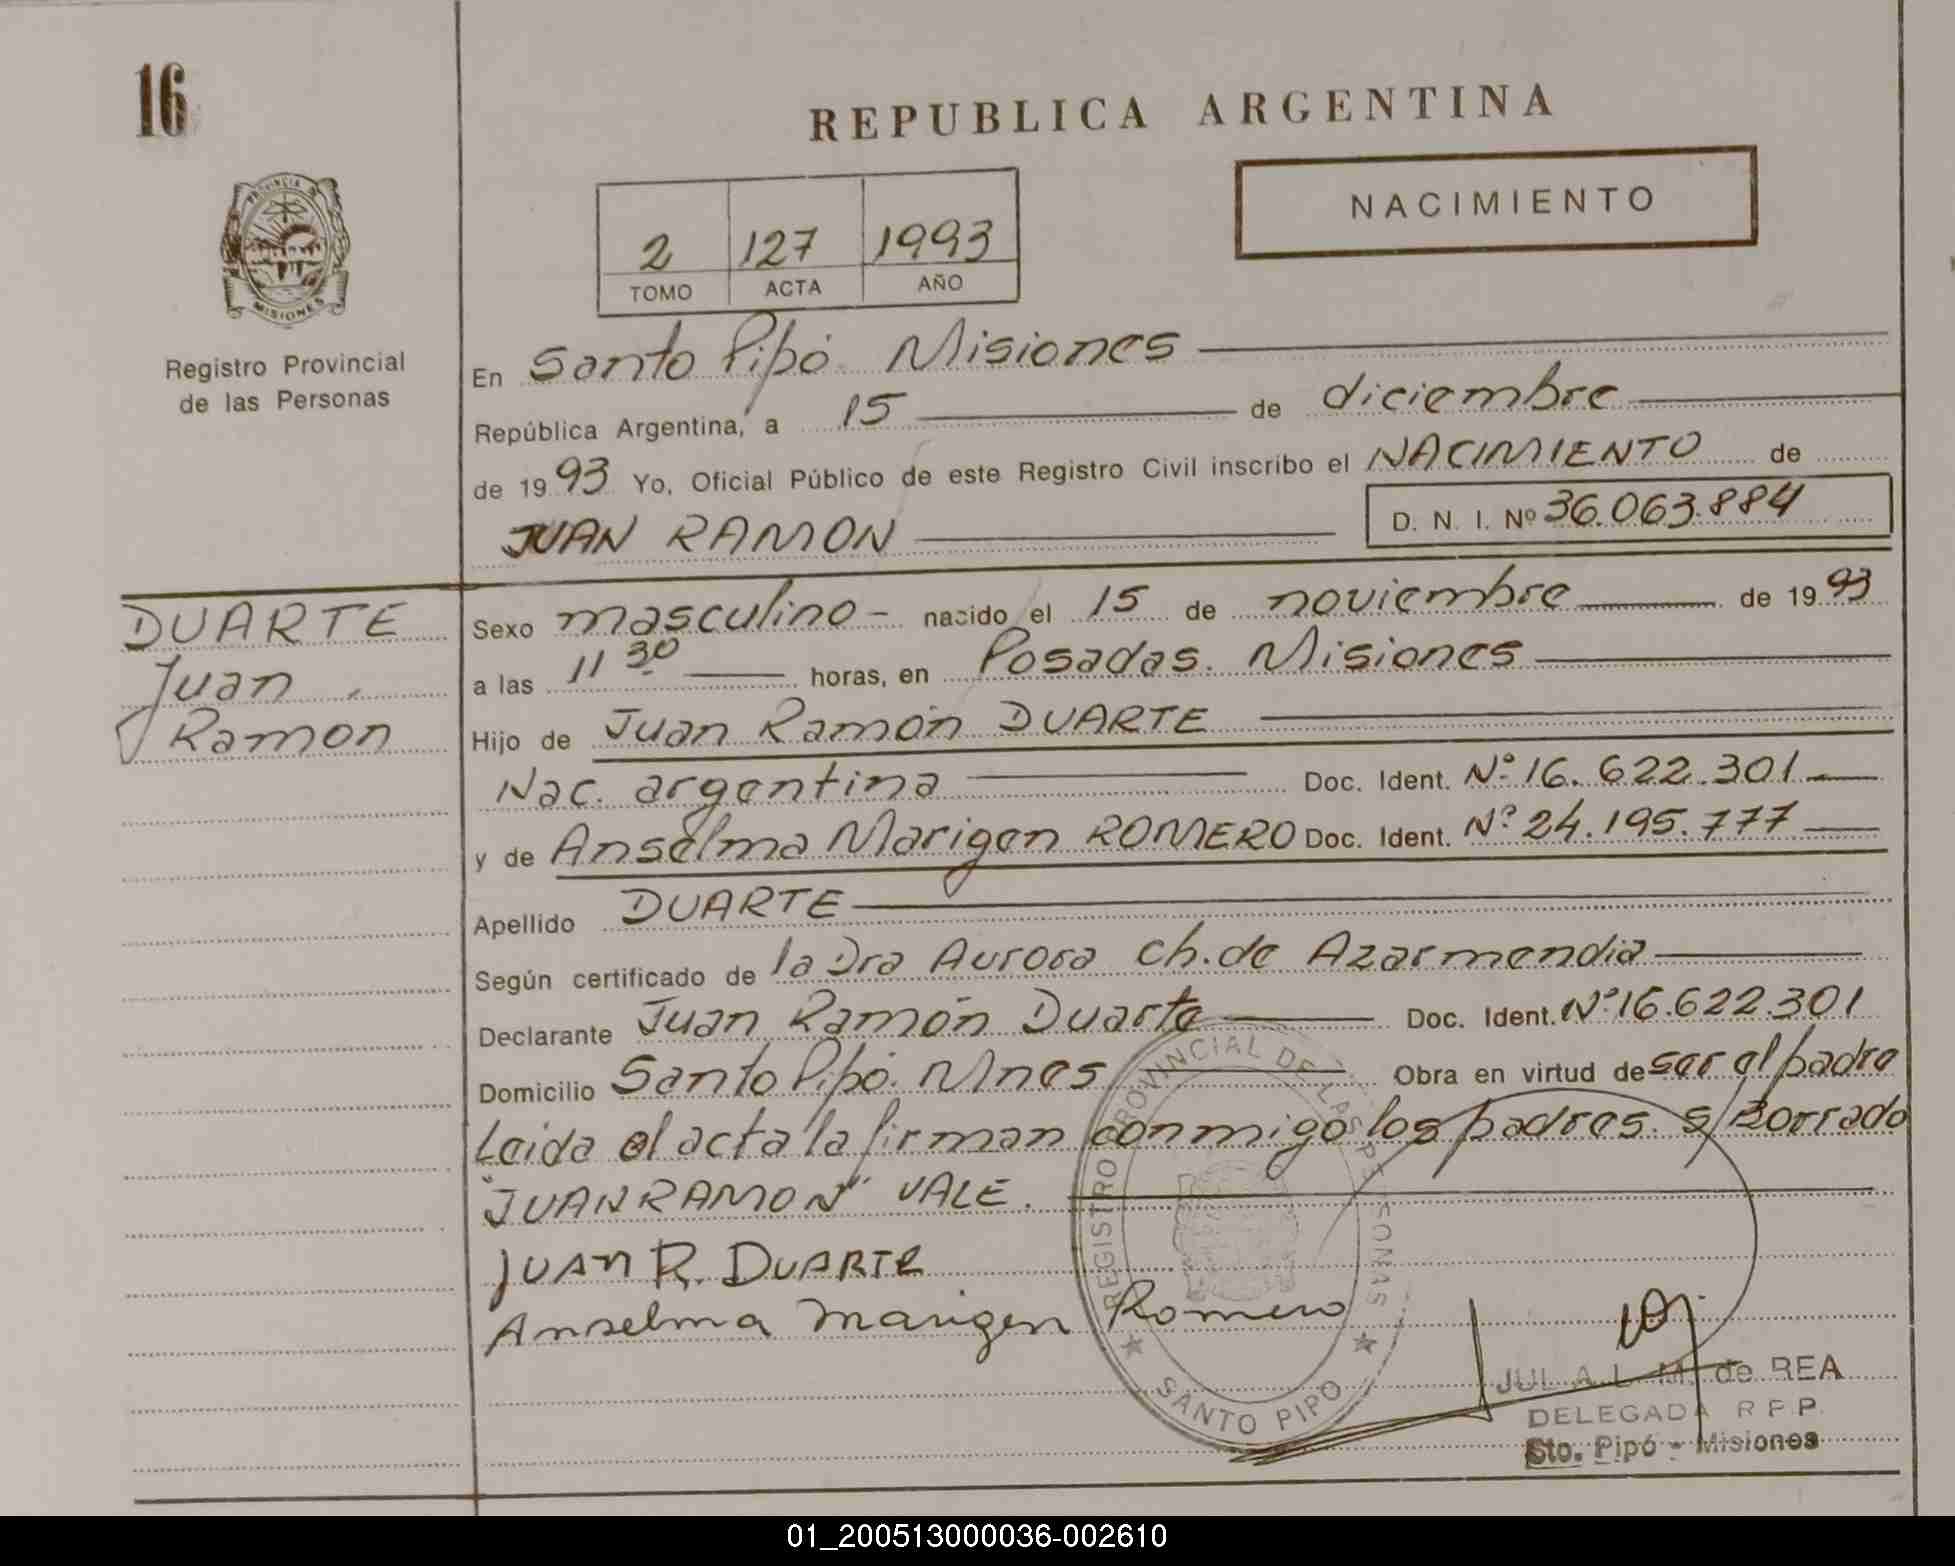 16
REPUBLICA ARGENTINA
NACIMIENTO
2 127 1993
TOMO ACTA AÑO
PROVINCIA DE
MISIONES
Registro Provincial
de las Personas
En Santo Pipó. Misiones
República Argentina, a 15 de diciembre
de 1993 Yo, Oficial Público de este Registro Civil inscribo el NACIMIENTO de
JUAN RAMON D. N. I. Nº 36.063.884
DUARTE
Juan
Ramon
Sexo masculino - nacido el 15 de noviembre de 1993
a las 11 30 horas, en Posadas. Misiones
Hijo de Juan Ramón DUARTE
Nac. argentina Doc. Ident. Nº 16.622.301
y de Anselma Marigen ROMERO Doc. Ident. Nº 24.195.777
Apellido DUARTE
Según certificado de la Dra Aurora Ch. de Azarmendia
Declarante Juan Ramón Duarte Doc. Ident. Nº 16.622.301
Domicilio Santo Pipó. Mnes Obra en virtud de ser el padre
Leida el acta la firman conmigo los padres. S/Borrado
"JUAN RAMON" VALE.
JUAN R. DUARTE
Anselma Marigen Romero
REGISTRO PROVINCIAL DE LAS PERSONAS
SANTO PIPO
L. M. de REA
DELEGADA R P P.
Sto. Pipó - Misiones
01_200513000036-002610